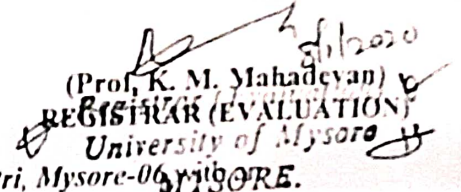 8/1/2020
(Prof. K. M. Mahadevan)
REGISTRAR (EVALUATION)
University of Mysore
ri, Mysore-06
MYSORE.